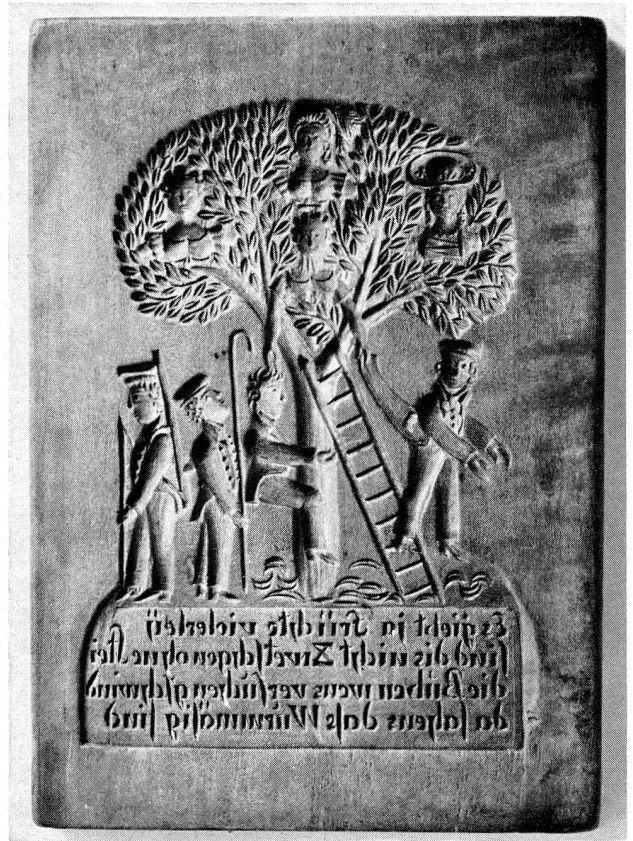 Es giebt ja Früchte vielerleÿ
sind dis nicht Zwetschgen ohne Stei
die Buben wens versuchen gschwind
da sahens dass Wurmmäsig sind